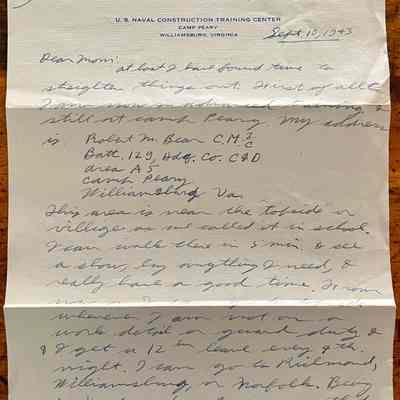 U. S. NAVAL CONSTRUCTION TRAINING CENTER
CAMP PEARY
WILLIAMSBURG, VIRGINIA
Sept. 10, 1943
Dear Mom:
at last I have found time to
straighten things out. First of all
I am now in advanced training &
still at camp Peary. My address
is Robert M. Bear C.M. 3/C
Batt. 129, Hdq. Co. C&D
area A5
Camp Peary
Williamsburg Va.
This area is near the topside or
village as we called it in school.
I can walk there in 5 min & see
a show, buy anything I need, &
really have a good time. From
now
whenever I am not on a
work detail or guard duty &
& I get a 12 hr leave every 4th
night. I can go to Richmond,
Williamsburg, or Norfolk. Being